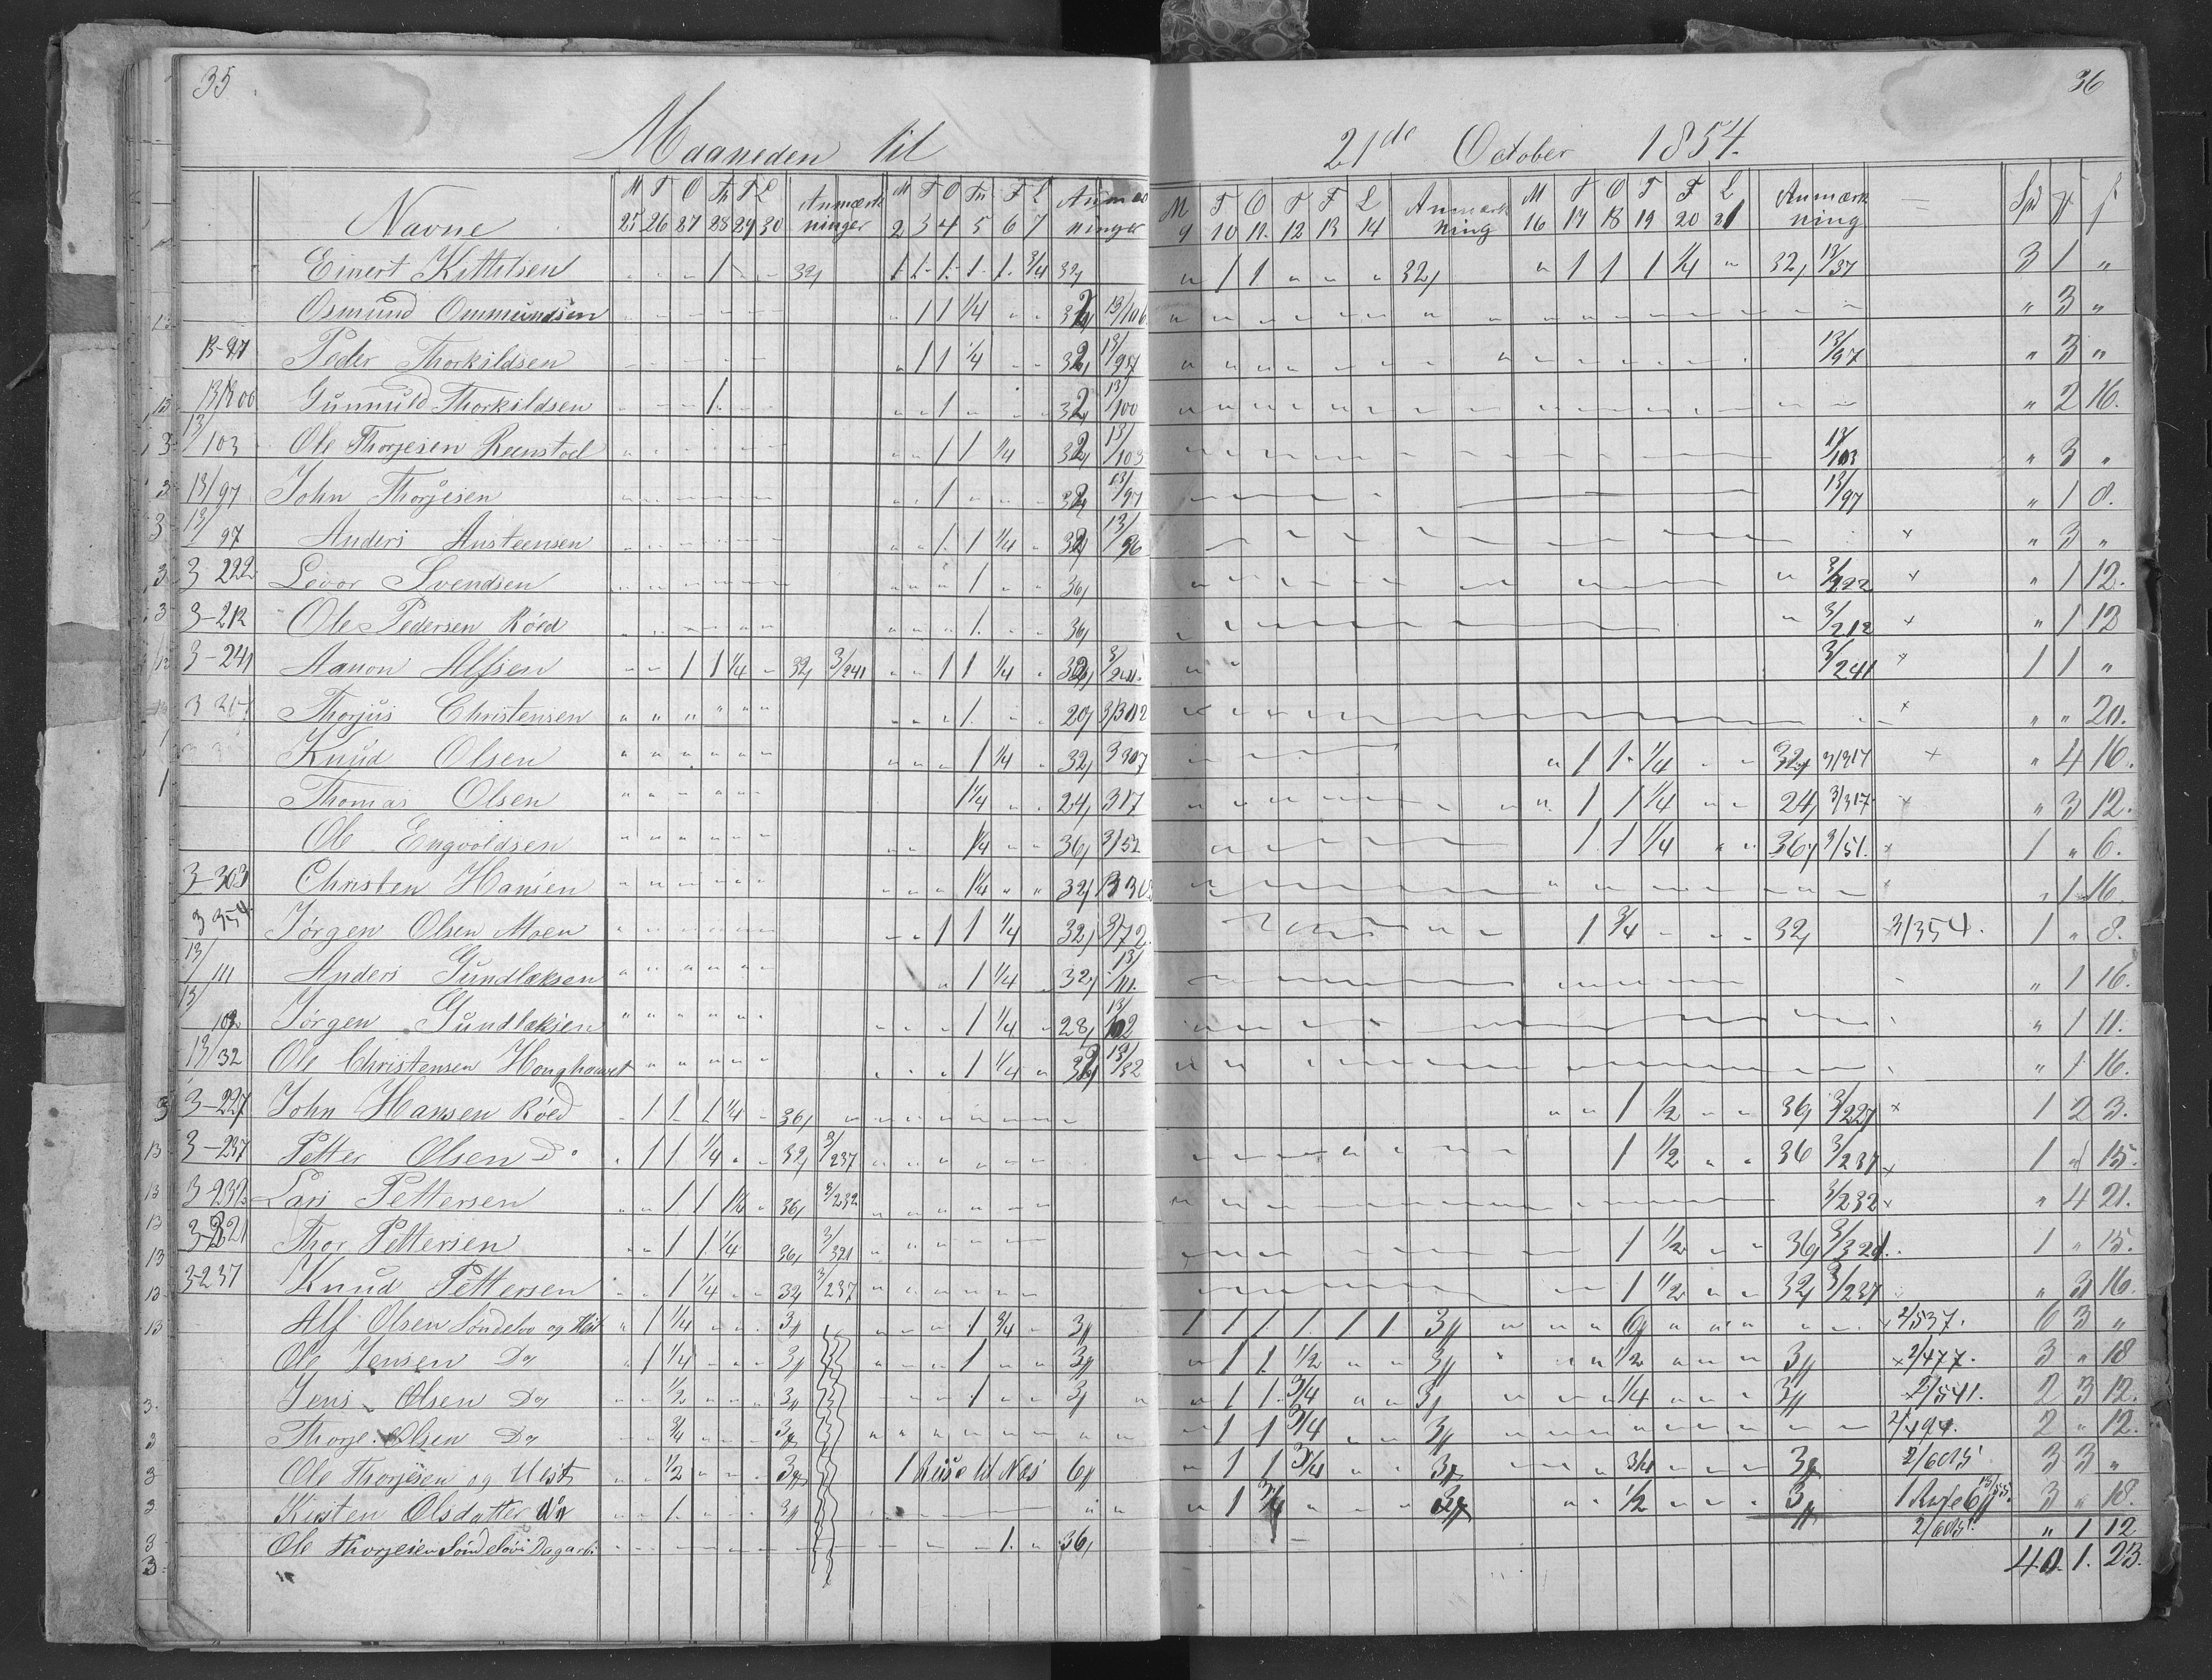 35 36
Maaneden til 21de October 1854.
Navne M 25 T 26 O 27 Th 28 F 29 L 30 Anmærkninger M 2 T 3 O 4 Th 5 F 6 L 7 M 9 T 10 O 11 T 12 F 13 L 14 Anmærkning M 16 T 17 O 18 T 19 F 20 L 21 Anmærkning
Einert Kittelsen 1 32 1 1 1 1 1 3/4 32 1 1 32 1 1 1 1/4 32 13/37 3 1 "
Osmund Ommundsen 1 1 1/4 32 13/106 " 3 "
13-97 Peder Thorkildsen 1 1 1/4 32 13/97 13/97 " 3 "
Gunnuld Thorkildsen 1 1 32 13/100 " 2 16.
13/103 Ole Thorjesen Reenstoel 1 1 1/4 32 13/103 13/103 " 3 "
13/97 John Thorjesen 1 32 13/97 13/97 " 1 8.
13/97 Anders Austeensen 1 1 1/4 32 13/96 × " 3 "
3 222 Levor Svendsen 1 36 3/222 × " 1 12.
3-212 Ole Pedersen Röed 1 36 3/212 × " 1 12
3-241 Aanon Alfsen 1 1 1/4 32 3/241 1 1 1/4 32 3/241 3/241 × 1 1 "
Thorjus Christensen 1 20 × " " 20.
Knud Olsen 1 1/4 32 3 307 1 1 1/4 32 3/317 × " 4 16.
Thomas Olsen 1 1/4 24 317 1 1 1/4 24 3/317 × " 3 12.
Ole Engvoldsen 1/4 36 3/52 1 1 1/4 36 3/51. × 1 " 6.
3-303 Christen Hansen 1/4 32 " 1 16.
3 354 Jørgen Olsen Moen 1 1 1/4 32 3/72 1 3/4 32 3/354. 1 " 8.
13/111 Anders Gundlaksen 1 1/4 32 13/111. " 1 16.
Jørgen Gundlaksen 1 1/4 28 13/102 " 1 11.
13/32 Ole Christensen 1 1/4 32 13/32 " 1 16.
3-227 John Hansen Röed 1 1 1 1/4 36 1 1/2 36 3/227 × 1 2 3.
3-237 Petter Olsen Do 1 1 1/4 32 3/237 1 1/2 36 3/237 × 1 " 15.
3-232 Lars Pettersen 1 1 1/4 36 3/232 3/232 × " 4 21.
3-321 Thor Pettersen 1 1 1/4 36 3/321 1 1/2 36 3/321. 1 " 15.
3-237 Knud Pettersen 1 1/4 32 3/237 1 1/2 32 3/237 " 3 16.
Alf Olsen Søndeløv og Hest 1 1/4 3 1 3/4 3 1 1 1 1 1 1 3 2/537. 6 3 "
Ole Jensen Do 1 1/4 3 1 3 1 1 1/2 3 1/2 3 × 2/477. 3 " 18
Jens Olsen Do 1/2 3 1 3 1 1 3/4 3 1/4 3 2/541. 2 3 12.
Thorje Olsen Do 3/4 3 1 1 3/4 3 2/494. 2 " 12.
Ole Thorjesen og Hest 1/2 3 1 Reise til Næs 6 1 1 3/4 3 3/4 3 2/605 3 3 "
Kirsten Olsdatter 1 3 1 3/4 3 1/2 3 3 " 18.
Ole Thorjesen Søndeløv 1 36 2/605 " 1 12
40. 1. 23.